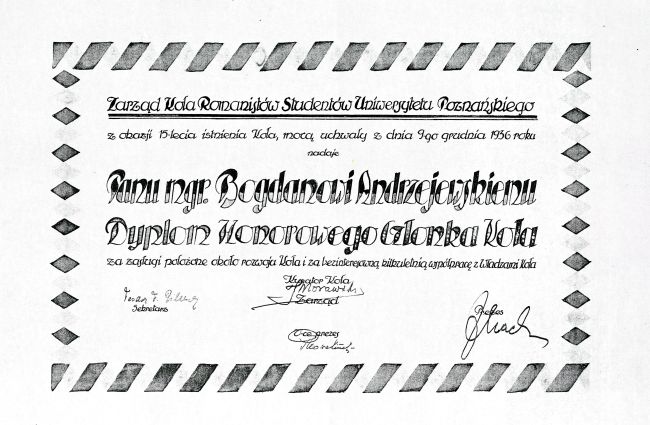 Zarząd Koła Romanistów Studentów Uniwersytetu Poznańskiego
z okazji 15-lecia istnienia Koła, mocą uchwały z dnia 9-go grudnia 1936 roku
nadaje
Panu mgr. Bogdanowi Andrzejewskiemu
Dyplom Honorowego Członka Koła
za zasługi położone około rozwoju Koła i za bezinteresowną kilkuletnią współpracę z Władzami Koła
Kurator Koła
Morawski
Zarząd
Sekretarz
Prezes
Vice-prezes